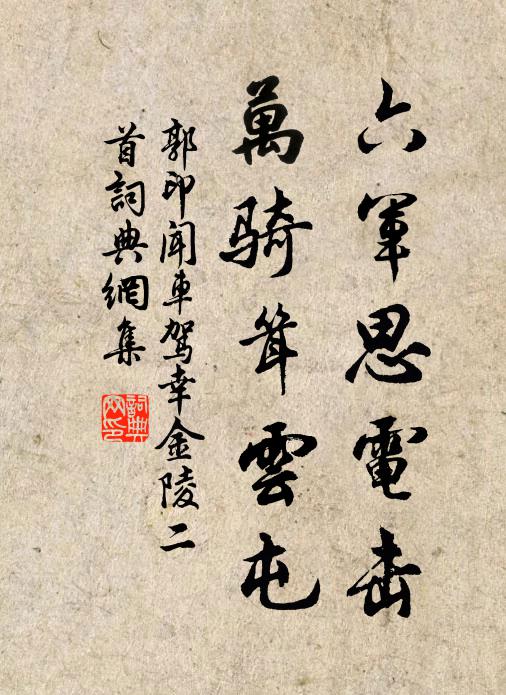 六軍思電击
萬騎耸雲屯
郭印闻車駕幸金陵二
首詞典網集
詞典網印